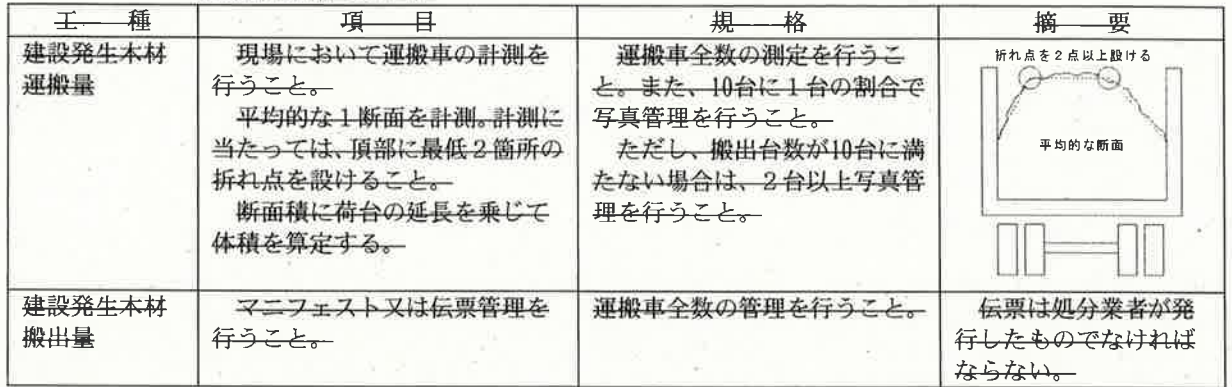 工 種 項 目 規 格 摘 要
建設発生木材
運搬量
現場において運搬車の計測を
行うこと。
平均的な1断面を計測。計測に
当たっては、頂部に最低2箇所の
折れ点を設けること。
断面積に荷台の延長を乗じて
体積を算定する。
運搬車全数の測定を行うこ
と。また、10台に1台の割合で
写真管理を行うこと。
ただし、搬出台数が10台に満
たない場合は、2台以上写真管
理を行うこと。
折れ点を2点以上設ける
平均的な断面
建設発生木材
搬出量
マニフェスト又は伝票管理を
行うこと。
運搬車全数の管理を行うこと。
伝票は処分業者が発
行したものでなければ
ならない。